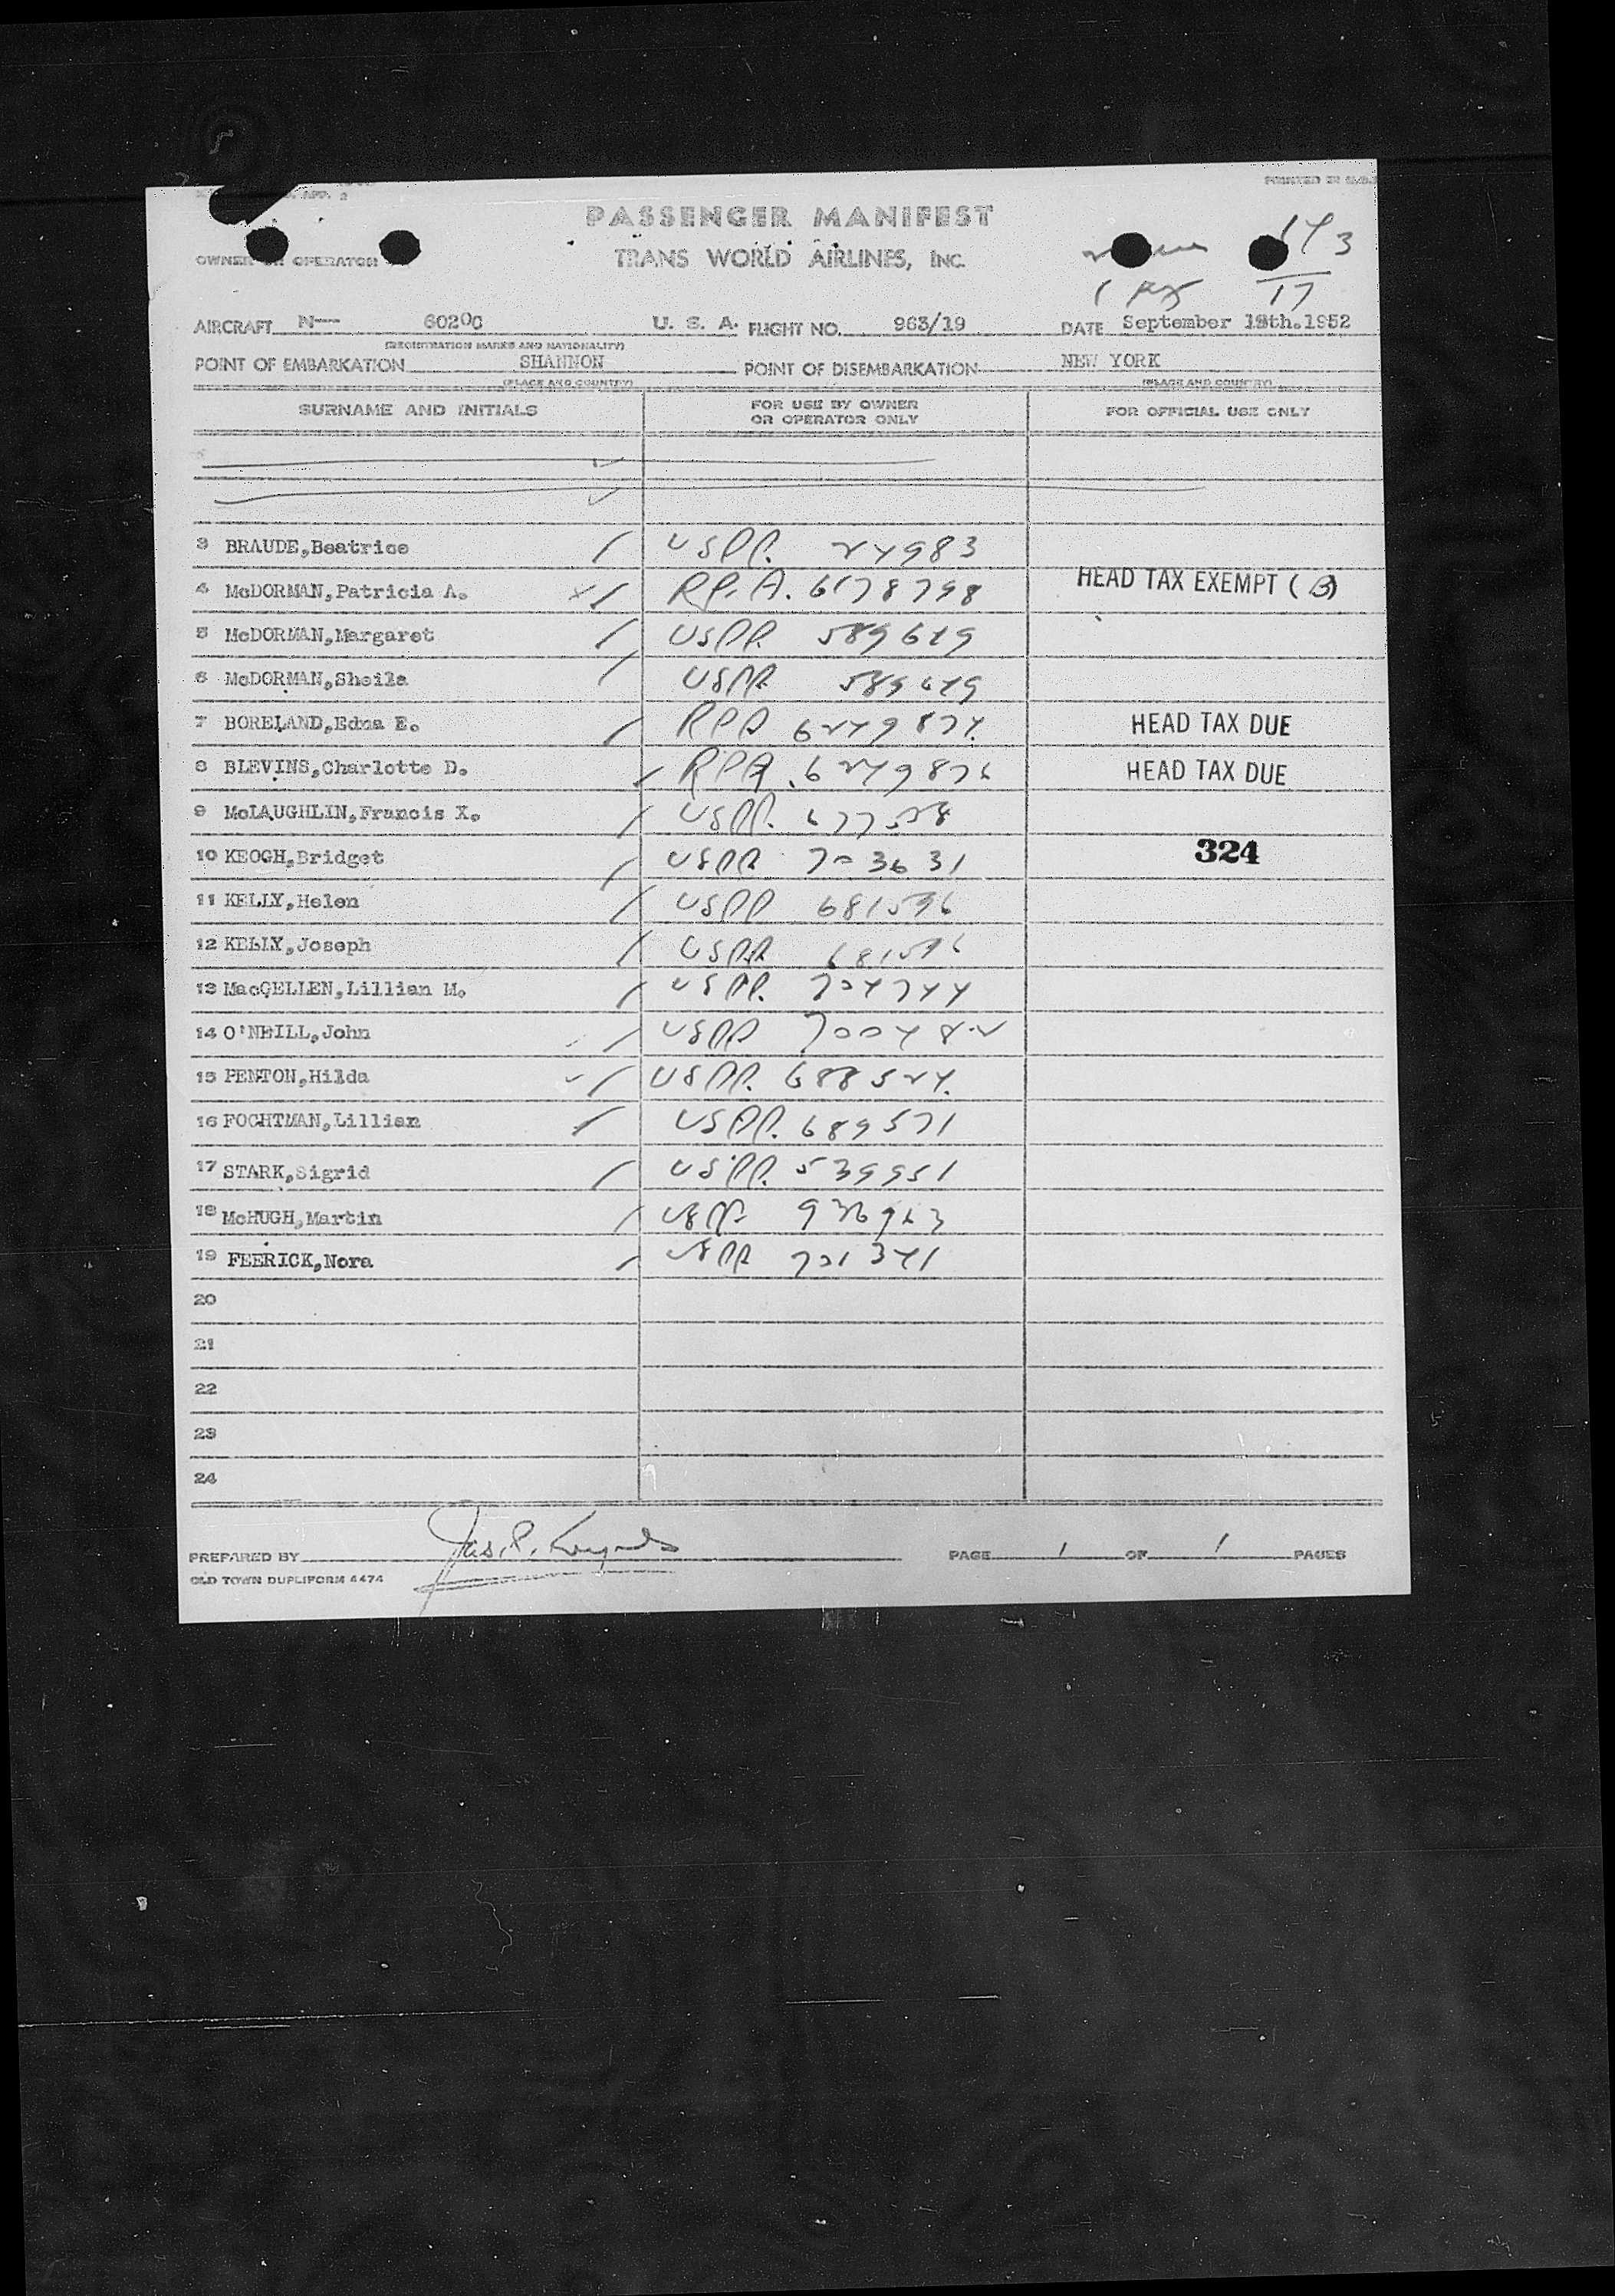 PRINTED IN U.S.A
PASSENGER MANIFEST
OWNER OR OPERATOR TRANS WORLD AIRLINES, INC.
AIRCRAFT N-- 6020C U. S. A. FLIGHT NO. 963/19 DATE September 19th.1952
(REGISTRATION MARKS AND NATIONALITY)
POINT OF EMBARKATION SHANNON POINT OF DISEMBARKATION NEW YORK
(PLACE AND COUNTRY) (PLACE AND COUNTRY)
SURNAME AND INITIALS FOR USE BY OWNER OR OPERATOR ONLY FOR OFFICIAL USE ONLY
3 BRAUDE,Beatrice USPP. 24983
4 McDORMAN,Patricia A. RP.A. 6178798 HEAD TAX EXEMPT (B)
5 McDORMAN,Margaret USPP. 589679
6 McDORMAN,Sheila USPP 589679
7 BORELAND,Edna E. RPA 6249874 HEAD TAX DUE
8 BLEVINS,Charlotte D. RPA 6249876 HEAD TAX DUE
9 McLAUGHLIN,Francis X. USPP. 677528
10 KEOGH,Bridget USPP 703631 324
11 KELLY,Helen USPP 681596
12 KELLY,Joseph USPP 681596
13 MacGELLEN,Lillian M. USPP. 704744
14 O'NEILL,John USPP 700482
15 PENTON,Hilda USPP. 688524
16 FOCHTMAN,Lillian USPP. 689571
17 STARK,Sigrid USPP. 539951
18 McHUGH,Martin USPP 936963
19 FEERICK,Nora USPP 701341
20
21
22
23
24
PREPARED BY PAGE 1 OF 1 PAGES
OLD TOWN DUPLIFORM 4474